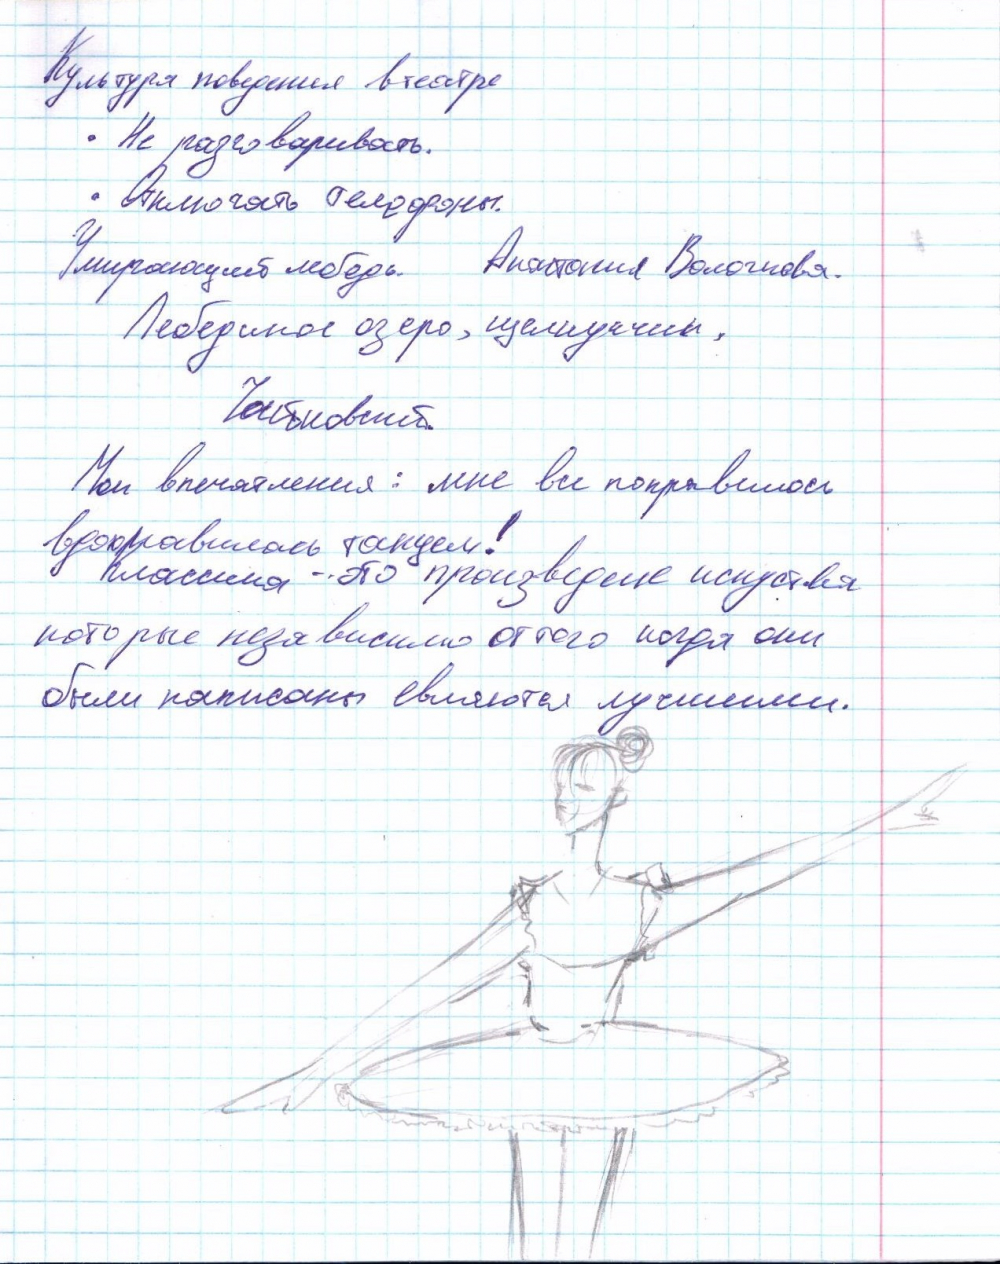 Культура поведения в театре
• Не разговаривать.
• Отключать телефоны.
Умирающий лебедь. Анастасия Волочкова.
Лебединое озеро, щелкунчик.
Чайковский.
Мои впечатления: мне все понравилось
танцем!
Классика - это произведене искуства
которые независимо от того когда они
были написаны евляются лучшими.